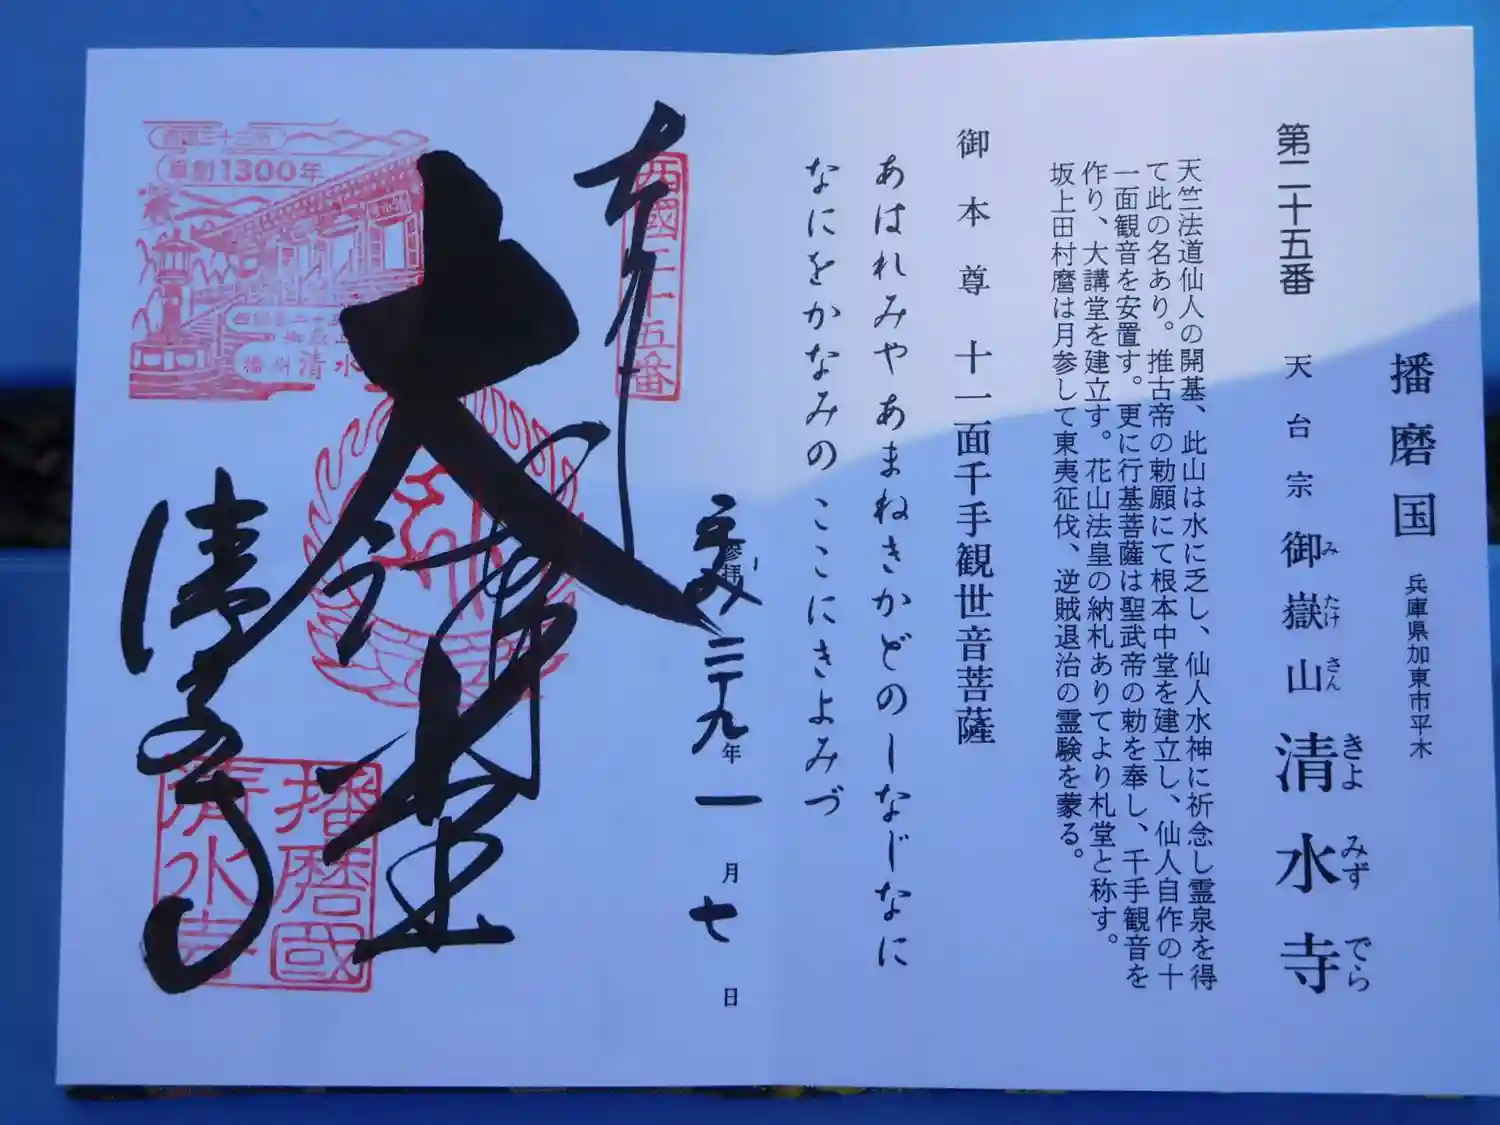 播磨国 兵庫県加東市平木
第二十五番 天台宗 御嶽山 清水寺
み たけ さん きよ みず でら
天竺法道仙人の開基、此山は水に乏し、仙人水神に祈念し霊泉を得
て此の名あり。推古帝の勅願にて根本中堂を建立し、仙人自作の十
一面観音を安置す。更に行基菩薩は聖武帝の勅を奉し、千手観音を
作り、大講堂を建立す。花山法皇の納札ありてより札堂と称す。
坂上田村麿は月参して東夷征伐、逆賊退治の霊験を蒙る。
御本尊 十一面千手観世音菩薩
あはれみやあまねきかどのしなじなに
なにをかなみのここにきよみづ
参拝 二十九年一月七日
西國二十五番
大
清水寺
草創1300年
播州清水
播磨國
清水寺